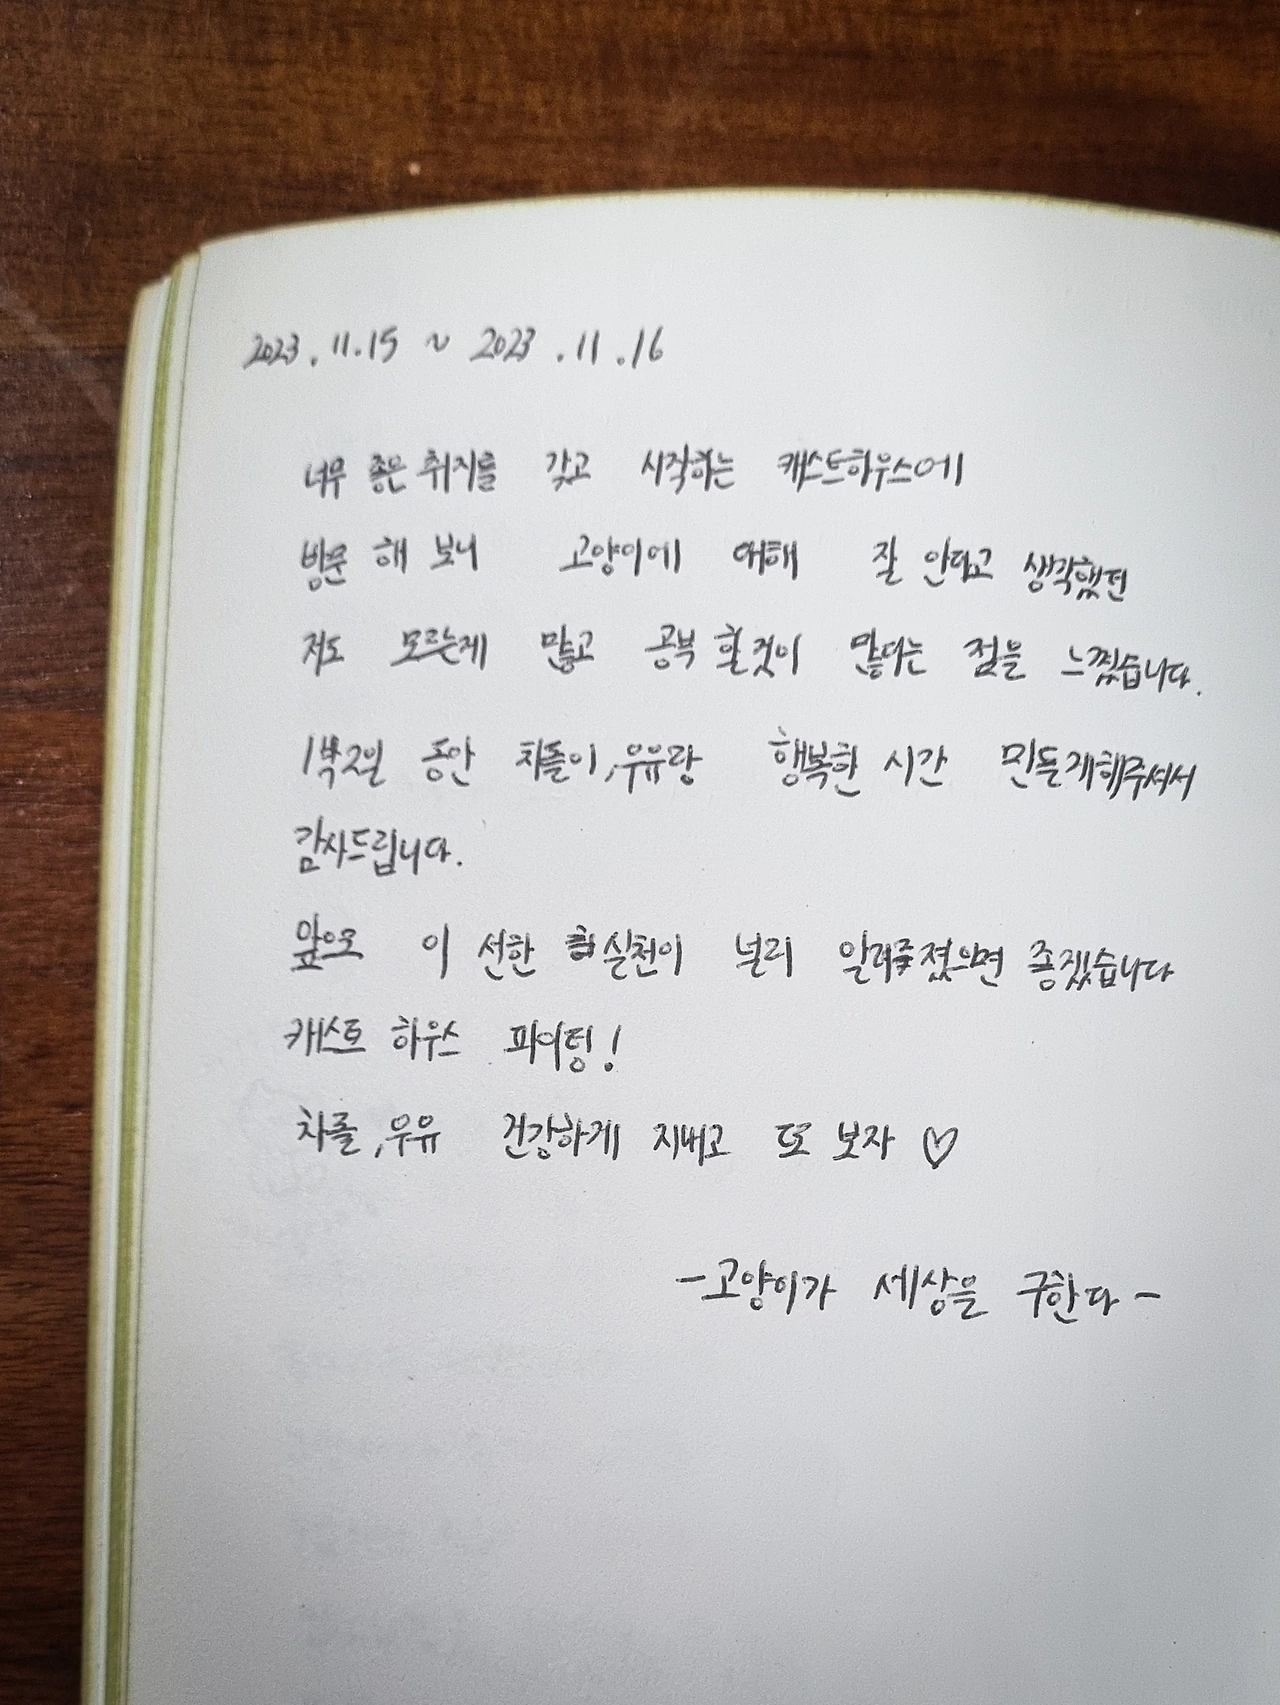 2023.11.15 ~ 2023.11.16
너무 좋은 취지를 갖고 시작하는 캐스트하우스에
방문 해 보니 고양이에 대해 잘 안다고 생각했던
저도 모르는게 많고 공부 할것이 많다는 점을 느꼈습니다.
1박2일 동안 차돌이,우유랑 행복한 시간 만들게해주셔서
감사드립니다.
앞으로 이 선한 실천이 널리 알려졌으면 좋겠습니다
캐스트 하우스 파이팅!
차돌,우유 건강하게 지내고 또 보자 ♡
-고양이가 세상을 구한다-